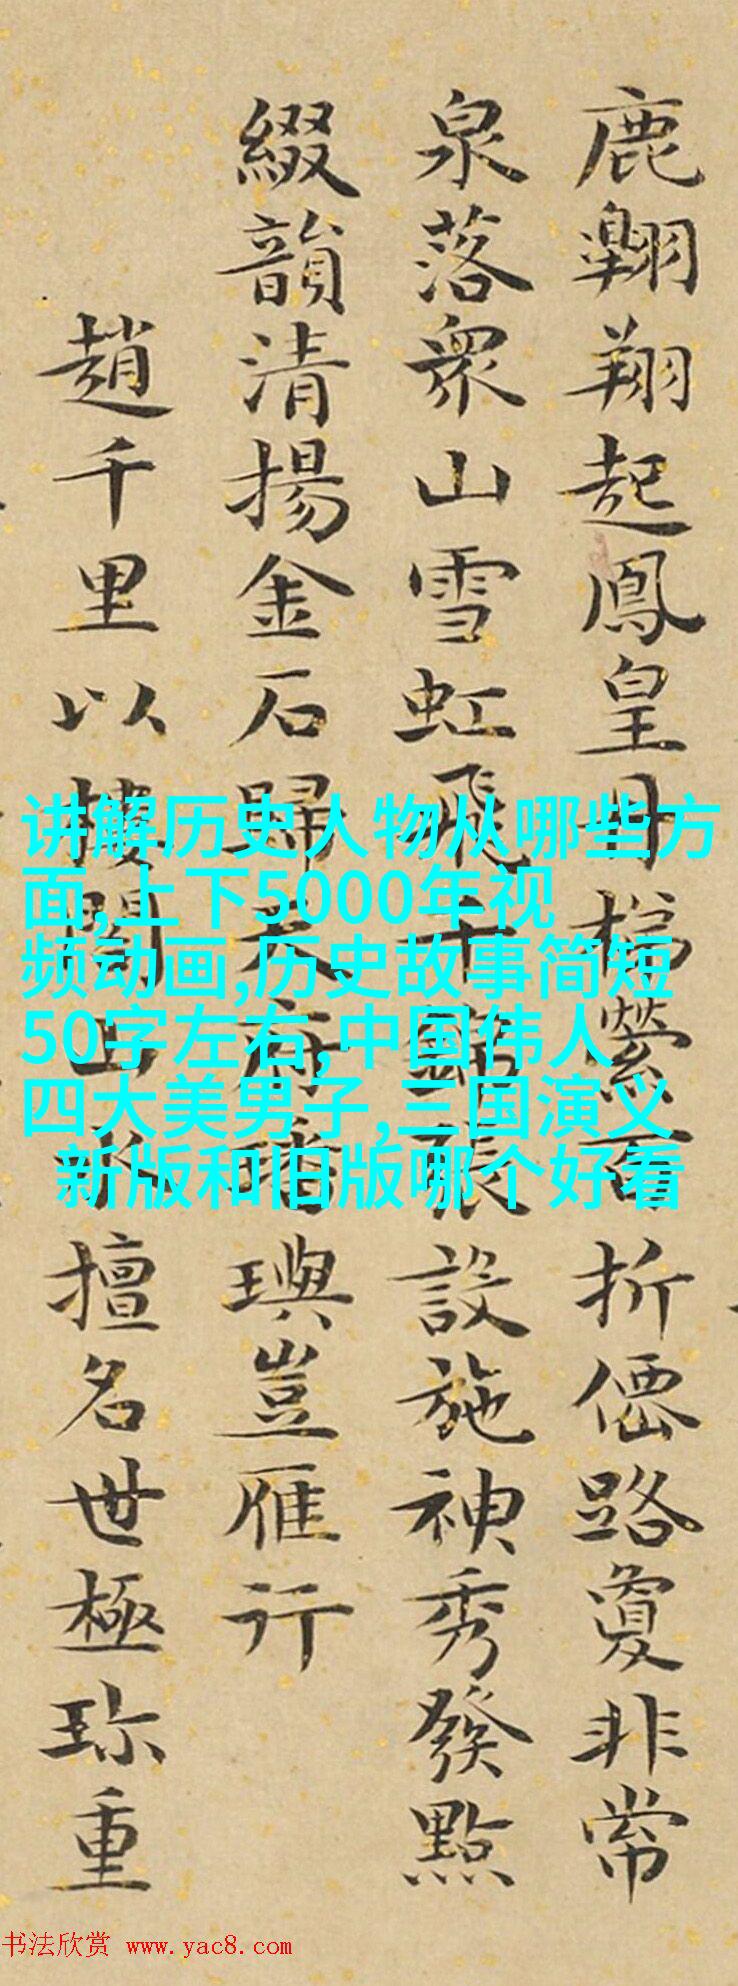 鹿翺翔起鳳皇丹梯縈百折僊路敻非常
泉落衆山雪虹飛千錦張設施神秀發點
綴韻清揚金石歸天府璠璵豈雁行
趙千里以樓閣山水擅名世極珍重
讲解历史人物从哪些方
面,上下5000年视
频动画,历史故事简短
50字左右,中国伟人
四大美男子,三国演义
新版和旧版哪个好看
书法欣赏 www.yac8.com